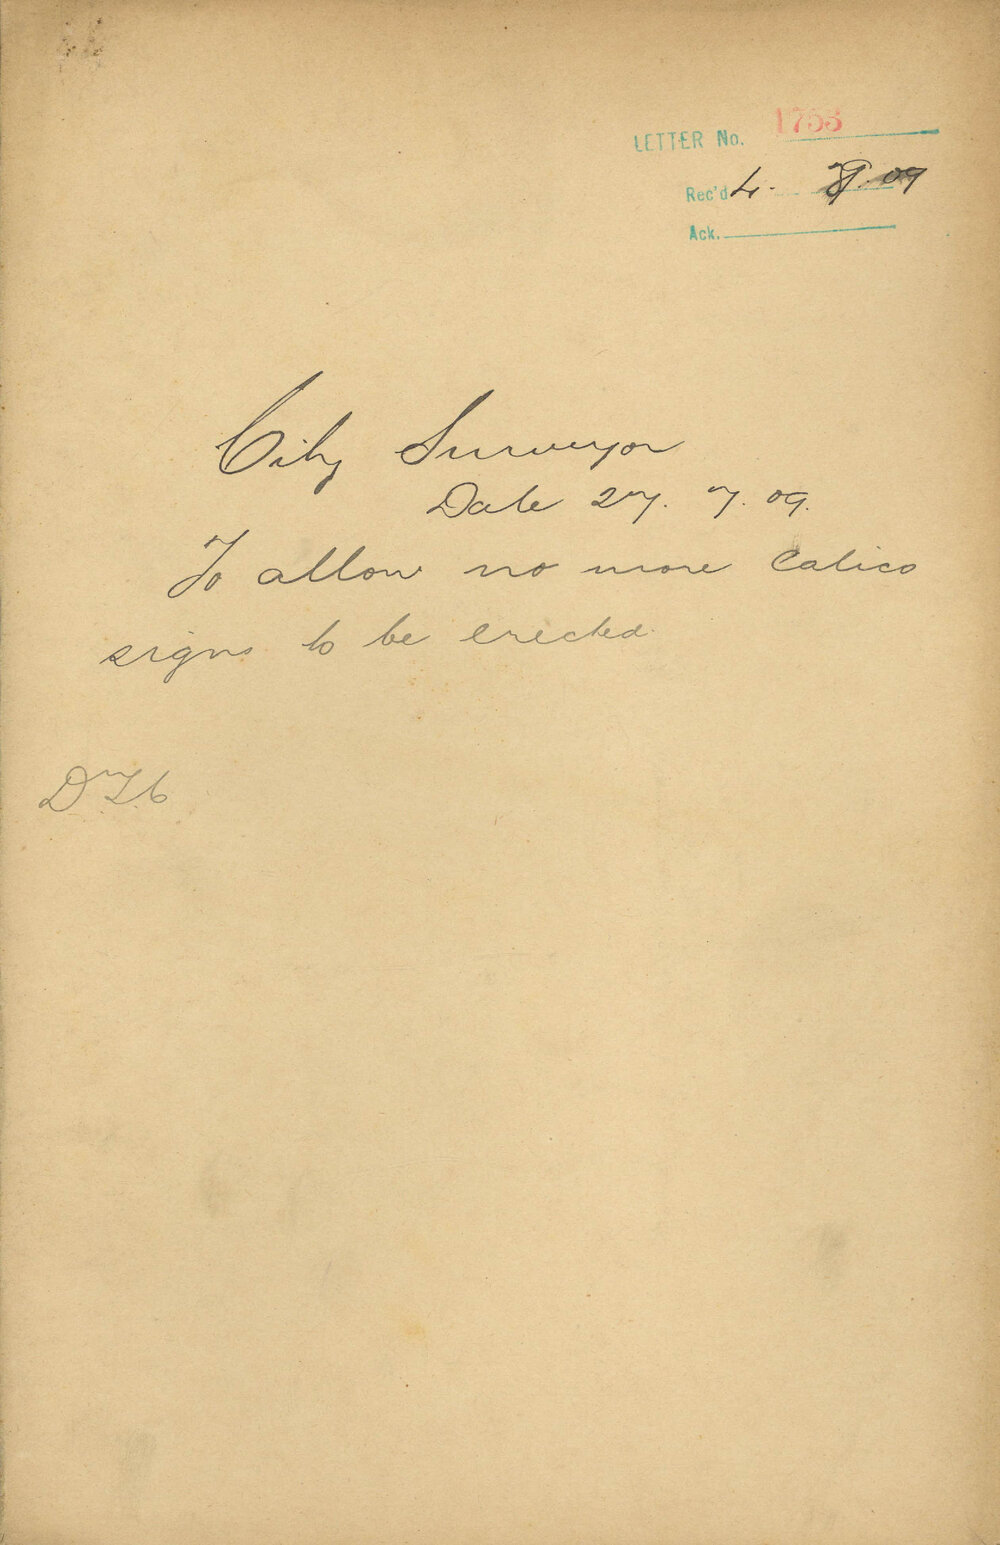 LETTER No. 1753
Rec'd 4. 8. 09
Ack.
City Surveyor
Date 27. 7. 09.
To allow no more Calico
signs to be erected.